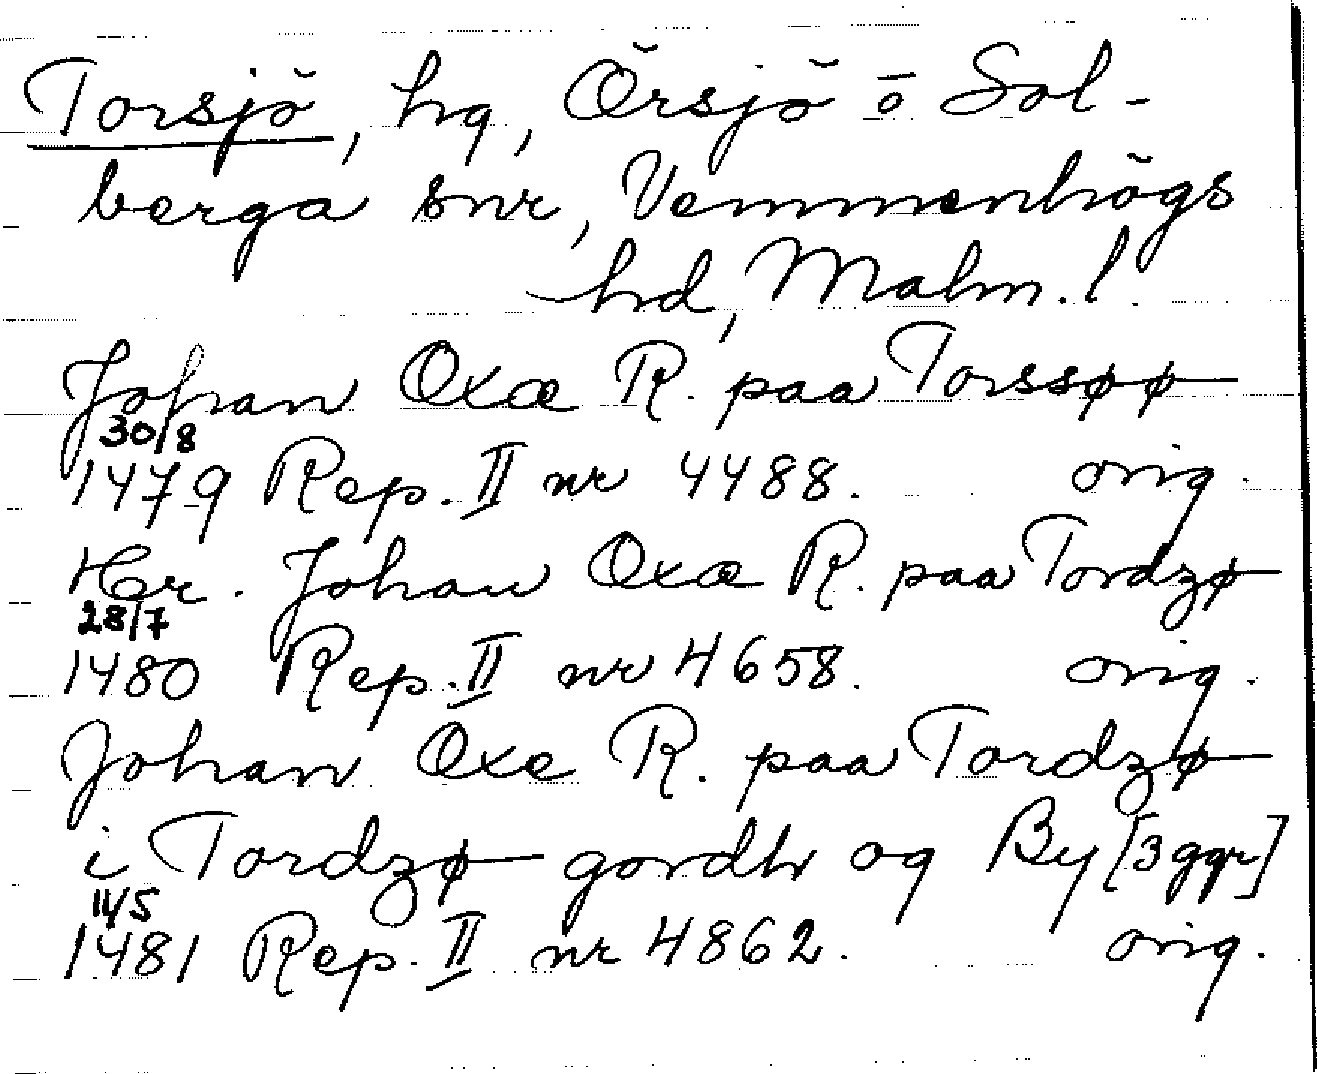 Torsjö, hg, Örsjö o Sol-
berga snr, Vemmenhögs
hd, Malm. l.
Johan Oxæ R. paa Torssøø
30/8
1479 Rep. II nr 4488. orig.
Her. Johan Oxæ R. paa Tordzø
28/7
1480 Rep. II nr 4658. orig.
Johan Oxe R. paa Tordzø
i Tordzø gordh og By [3 ggr]
11/5
1481 Rep. II nr 4862. orig.